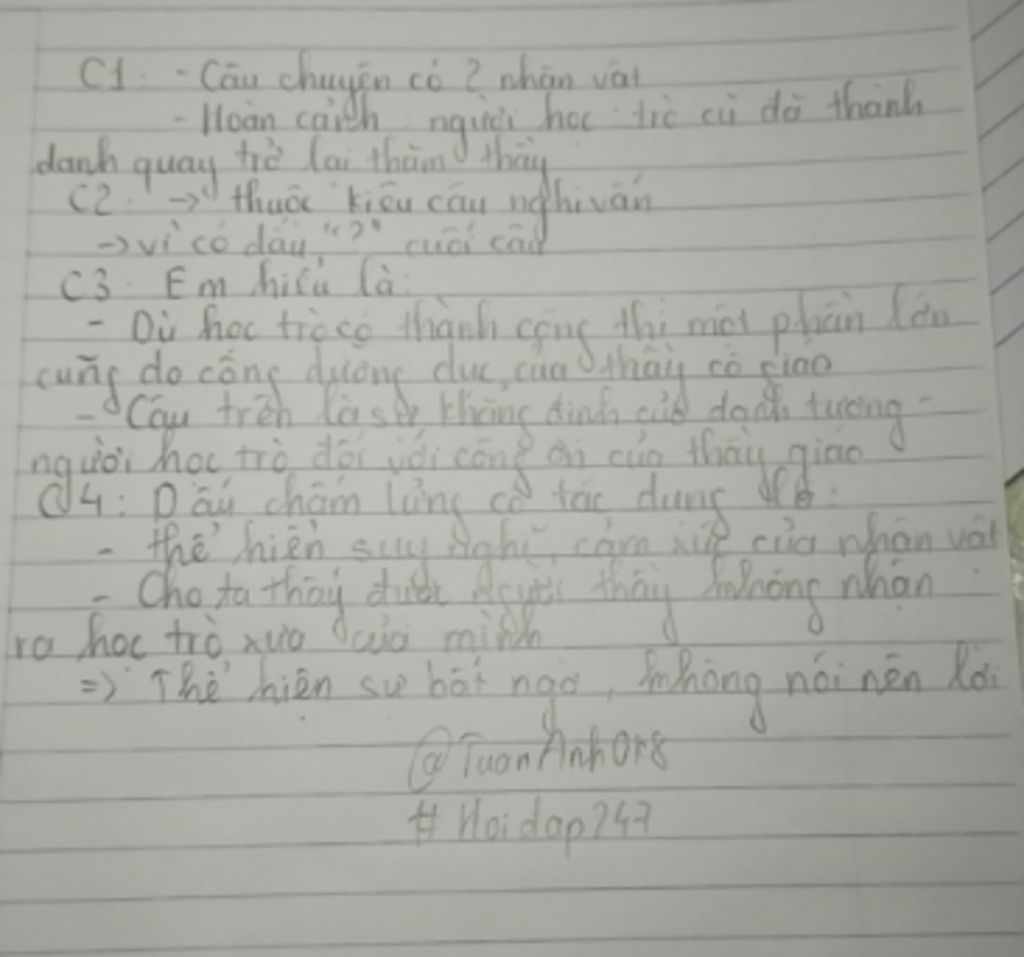 C1: - Câu chuyện có 2 nhân vật
- Hoàn cảnh người học trò cũ đã thành
danh quay trở lại thăm thầy
C2: -> thuộc kiểu câu nghi vấn
-> vì có dấu "?" cuối câu
C3: Em hiểu là:
- Dù học trò có thành công thì một phần lớn
cũng do công dưỡng dục của thầy cô giáo
- Câu trên là sự khẳng định của danh tướng -
người học trò đối với công ơn của thầy giáo
C4: Dấu chấm lửng có tác dụng
- thể hiện suy nghĩ, cảm xúc của nhân vật
- Cho ta thấy được người thầy không nhận
ra học trò xưa của mình
=> Thể hiện sự bất ngờ, không nói nên lời
@TuanAnhOr8
#Hoidap247